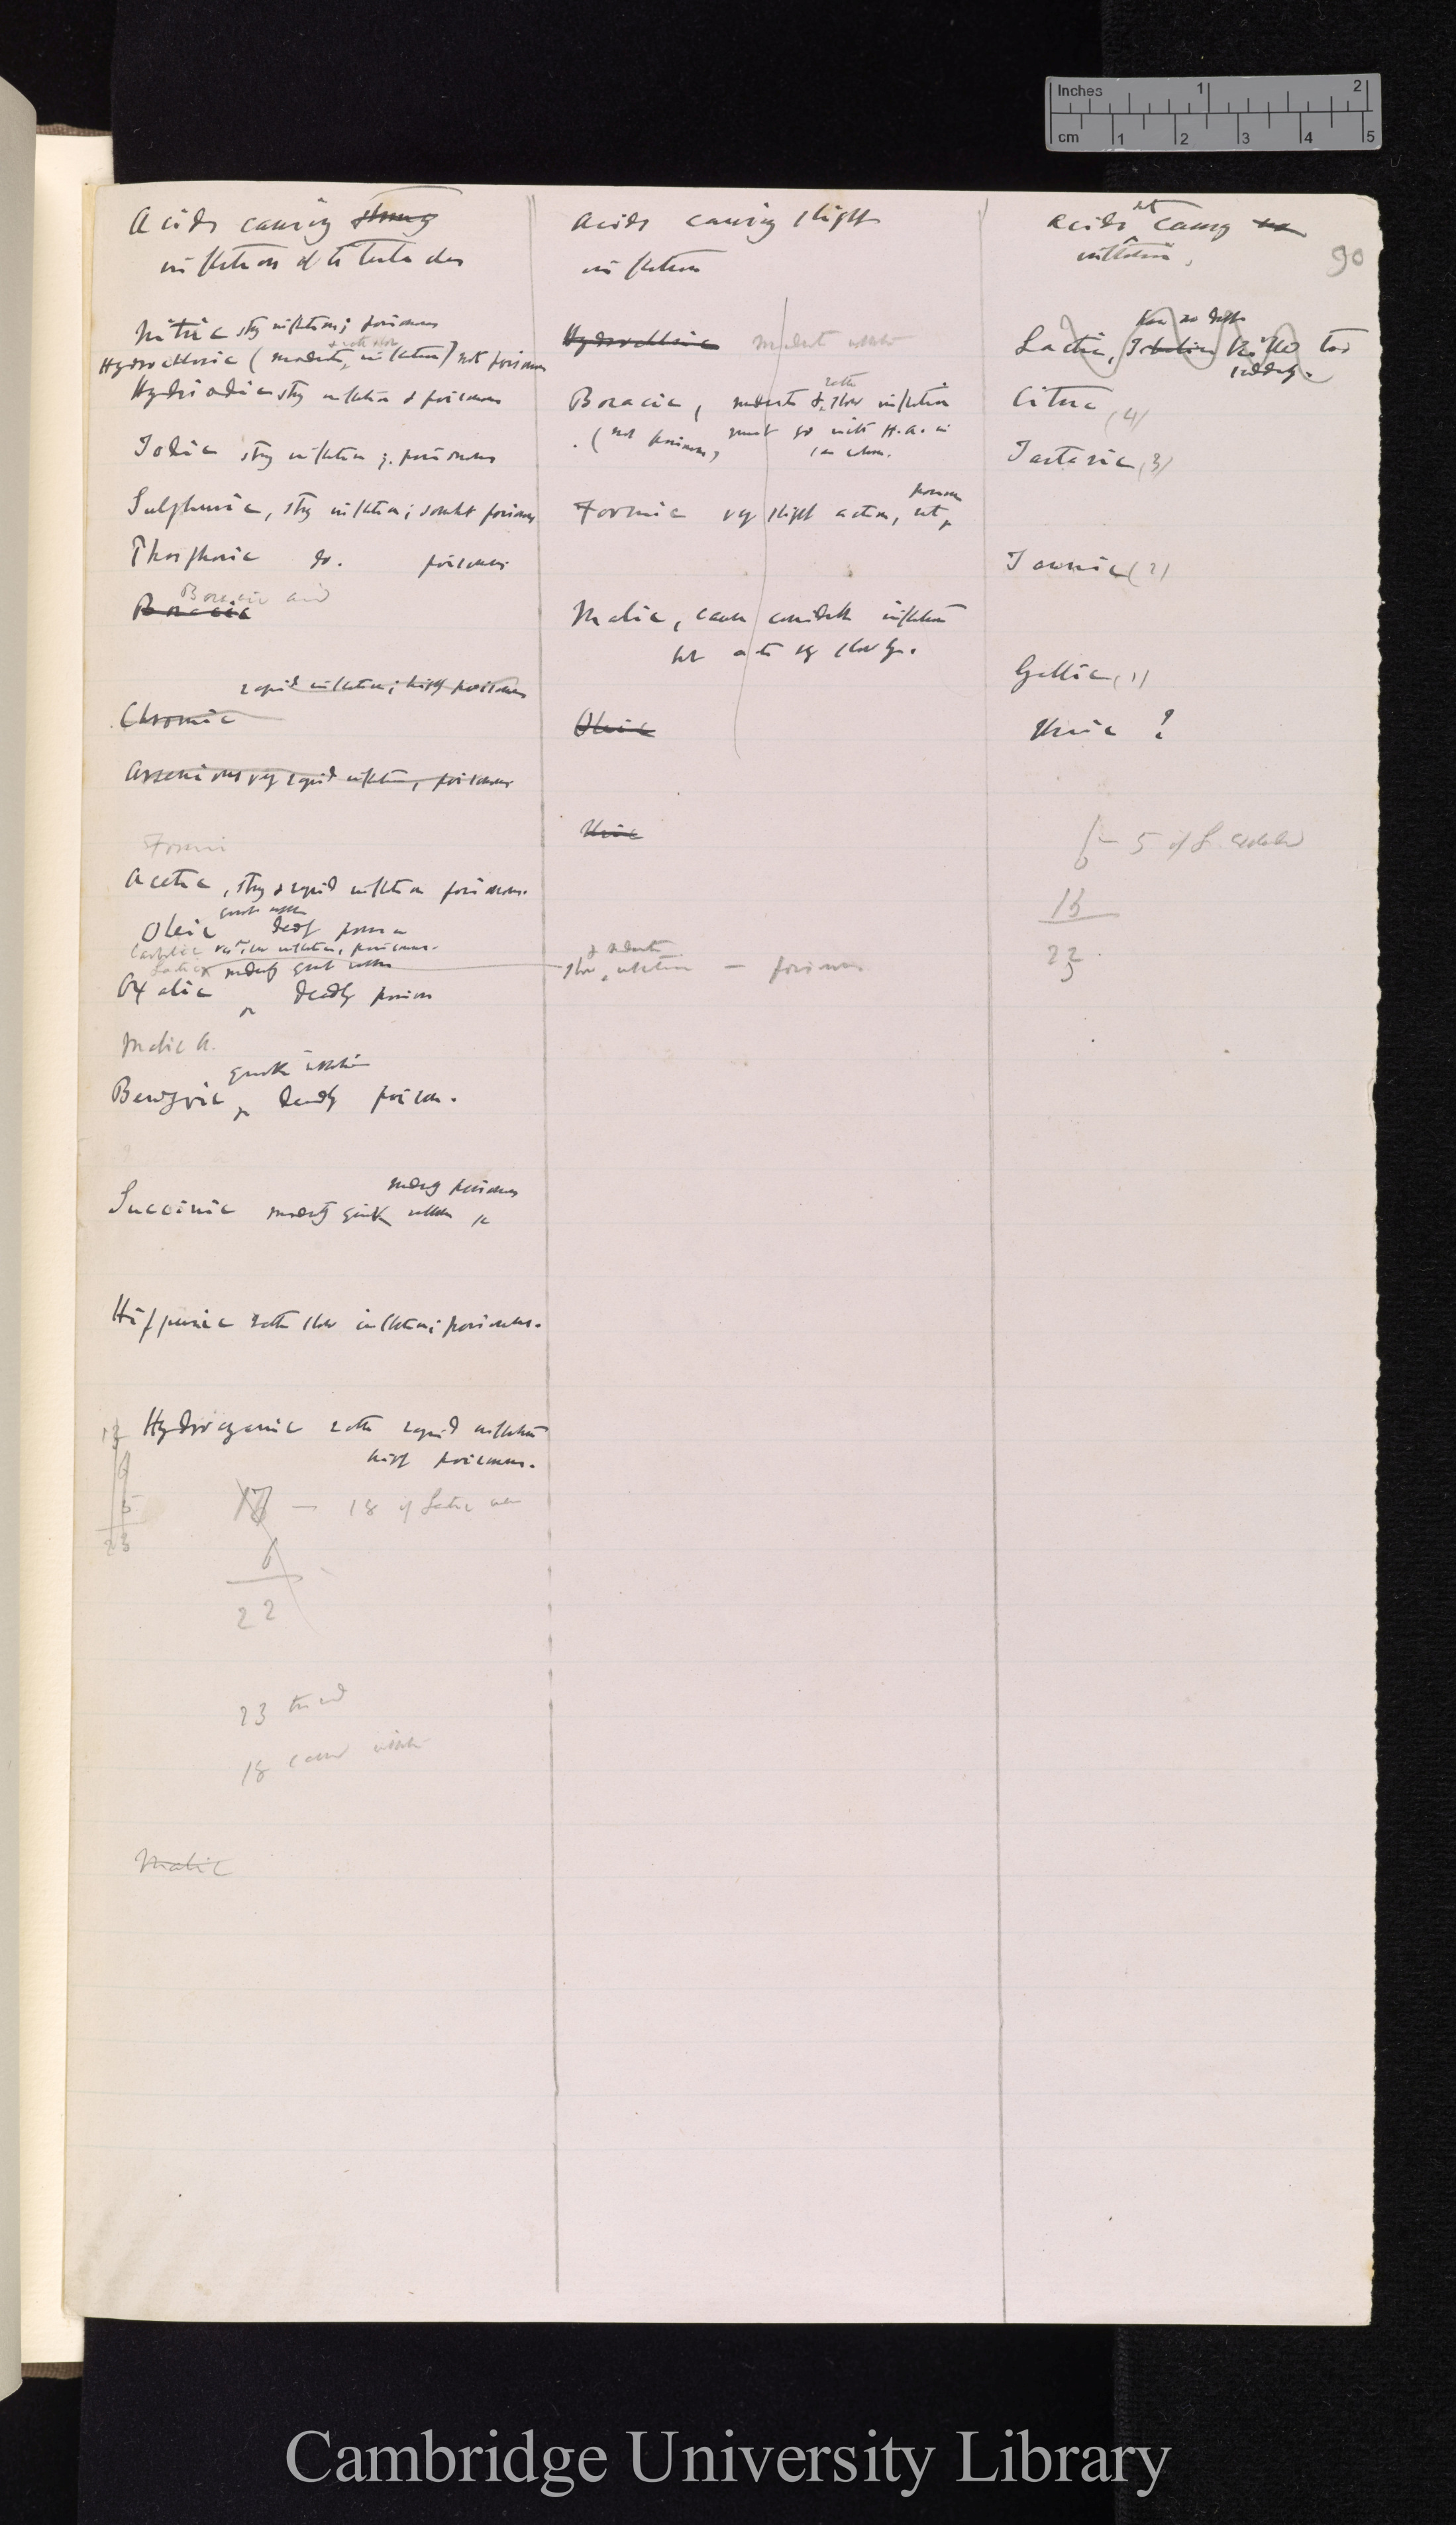 Inches 1 2
cm 1 2 3 4 5
90
Acids causing strong
inflection of the tentacles
Nitric strg inflection; poisonous
Hydrochloric (moderate inflection) not poisonous
Hydriodic strg inflection & poisonous
Iodic strg inflection & poisonous
Sulphuric, strg inflection; somewhat poisonous
Phosphoric do. poisonous
Boracic acid
Boracic
rapid inflection; highly poisonous
Chromic
Arsenious very rapid inflection, poisonous
Formic
Acetic, strg & rapid inflection poisonous.
quick inflection
Oleic deadly poison
Carbolic rather slow inflection, poisonous.
Lactic modly quick inflection
Oxalic deadly poison
Malic A.
quick inflection
Benzoic deadly poison.
modly poisonous
Succinic modly quick inflection
Hippuric rather slow inflection; poisonous.
Hydrocyanic rather rapid inflection
highly poisonous.
13
6
5
23
17 — 18 if Lactic
6
22
23 tried
18 caused inflection
Malic
Acids causing slight
inflection
Hydrochloric moderate inflection
rather
Boracic, moderate & slow inflection
(not poisonous, must go with H.A. in
1st column.
poison
Formic vy slight action, not
Malic, causes considerable inflection
but acts vy slowly.
Oleic
Uric
& moderate
slow inflection — poisonous
Acids not causing
inflection,
Lactic, killed too
suddenly.
Citric (4)
Tartaric (3)
Tannic (2)
Gallic (1)
Uric ?
6 — 5 if L. excluded
18
23
Cambridge University Library